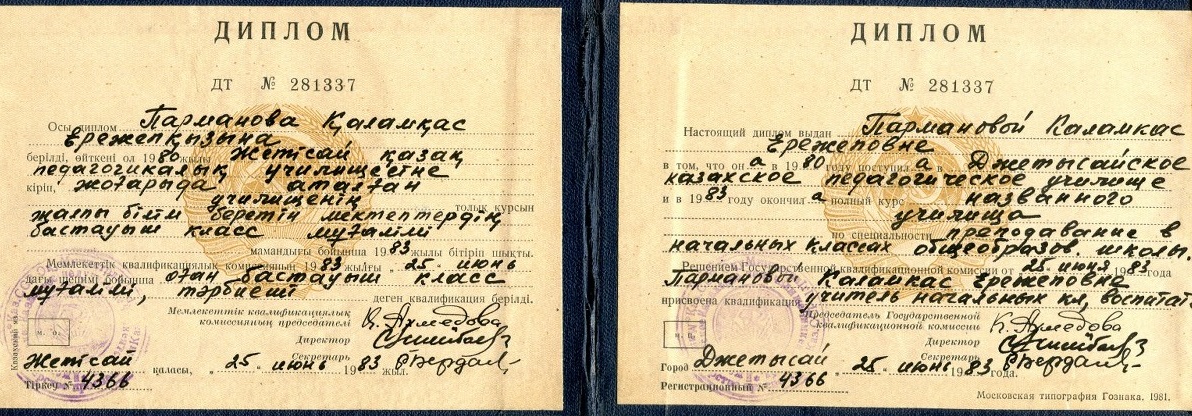 ДИПЛОМ
ДТ № 281337
Осы диплом Парманова Қаламқас
Ережепқызына
берілді, өйткені ол 1980 жылы Жетісай қазақ
педагогикалық училищесіне
кіріп, жоғарыда аталған
училищенің толық курсын
жалпы білім беретін мектептердің
бастауыш класс мұғалімі
мамандығы бойынша 1983 жылы бітіріп шықты.
Мемлекеттік квалификациялық комиссияның 1983 жылғы 25. июнь
дағы шешімі бойынша оған бастауыш класс
мұғалімі, тәрбиеші деген квалификация берілді.
Мемлекеттік квалификациялық
комиссияның председателі К. Ахмедова
Директор
Секретарь
м. о.
Жетісай қаласы, 25. июнь 1983 жыл.
Тіркеу № 4366
ДИПЛОМ
ДТ № 281337
Настоящий диплом выдан Пармановой Каламкас
Ережеповне
в том, что она в 1980 году поступила в Джетысайское
казахское педагогическое училище
и в 1983 году окончила полный курс названного
училища
по специальности преподавание в
начальных классах общеобразов. школы.
Решением Государственной квалификационной комиссии от 25 июня 1983 года
Пармановой Каламкас Ережеповне
присвоена квалификация учитель начальных кл, воспитат
Председатель Государственной
Квалификационной комиссии К. Ахмедова
Директор
Секретарь
Город Джетысай 25. июнь 1983 года.
Регистрационный № 4366
Московская типография Гознака. 1981.